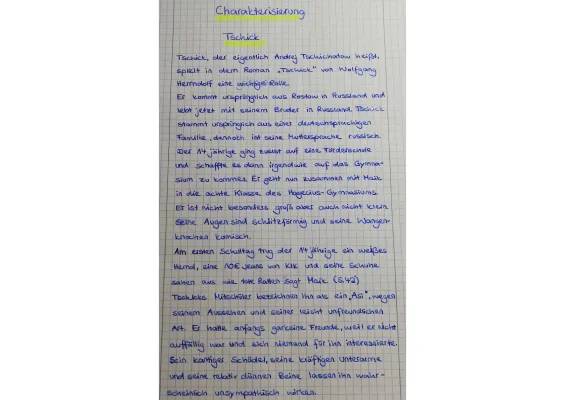 Charakterisierung
Tschick
Tschick, der eigentlich Andrej Tschichatow heißt,
spielt in dem Roman „Tschick" von Wolfgang
Herrndorf eine wichtige Rolle.
Er kommt ursprünglich aus Rostow in Russland und
lebt jetzt mit seinem Bruder in Russland. Tschick
stammt ursprünglich aus einer deutschsprachigen
Familie, dennoch ist seine Muttersprache russisch.
Der 14 jährige ging zuerst auf eine Förderschule
und schaffte es dann irgendwie auf das Gymna-
sium zu kommen. Er geht nun zusammen mit Maik
in die achte Klasse des Hagecius-Gymnasiums.
Er ist nicht besonders groß aber auch nicht klein.
Seine Augen sind schlitzförmig und seine Wangen-
knochen komisch.
Am ersten Schultag trug der 14 jährige ein weißes
Hemd, eine 10€ Jeans von KiK und seine Schuhe
sahen aus wie tote Ratten sagt Maik. (S.42)
Tschicks Mitschüler bezeichnen ihn als ein „Asi", wegen
seinem Aussehen und seiner leicht unfreundlichen
Art. Er hatte anfangs gar keine Freunde, weil er nicht
auffällig war und sich niemand für ihn interessierte.
Sein kantiger Schädel, seine kräftigen Unterarme
und seine relativ dünnen Beine lassen ihn wahr-
scheinlich unsympathisch wirken.